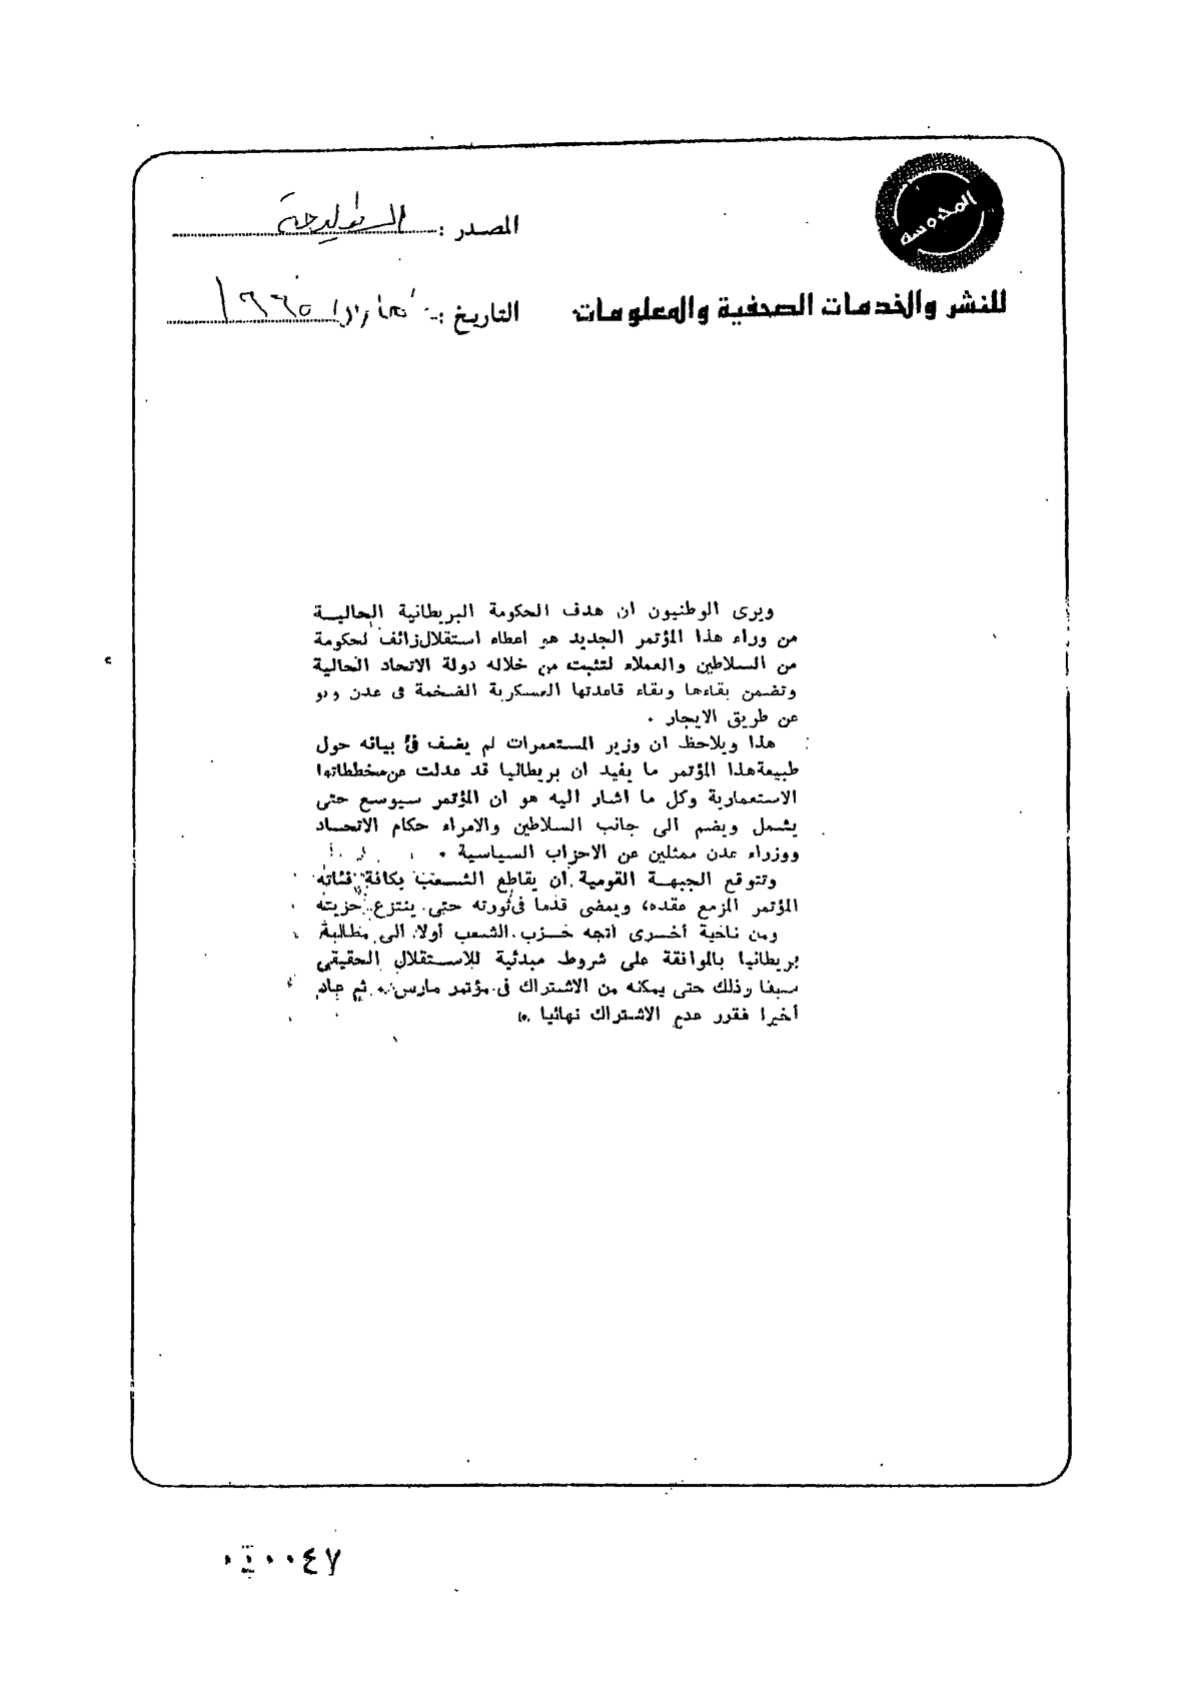 المحروسة
المصدر :
للنشر والخدمات الصحفية والمعلومات
التاريخ :
ويرى الوطنيون ان هدف الحكومة البريطانية الحاليــة
من وراء هذا المؤتمر الجديد هو اعطاء استقلال زائف لحكومة
من السلاطين والعملاء لتثبت من خلاله دولة الاتحاد الحالية
وتضمن بقاءها وبقاء قاعدتها العسكرية الضخمة فى عدن ولو
عن طريق الايجار .
هذا ويلاحظ ان وزير المستعمرات لم يضف فى بيانه حول
طبيعة هذا المؤتمر ما يفيد ان بريطانيا قد عدلت عن مخططاتها
الاستعمارية وكل ما اشار اليه هو ان المؤتمر سيوسع حتى
يشمل ويضم الى جانب السلاطين والامراء حكام الاتحـاد
ووزراء عدن ممثلين عن الاحزاب السياسية .
وتتوقع الجبهـة القومية ان يقاطع الشـعب بكافة فئاته
المؤتمر المزمع عقده، ويمضى قدما فى ثورته حتى ينتزع حريته
ومن ناحية أخـرى اتجه حـزب الشعب أولا الى مطالبة
بريطانيا بالموافقة على شروط مبدئية للاسـتقلال الحقيقي
سبقا وذلك حتى يمكنه من الاشتراك فى مؤتمر مارس .. ثم عاد
أخيرا فقرر عدم الاشتراك نهائيا .